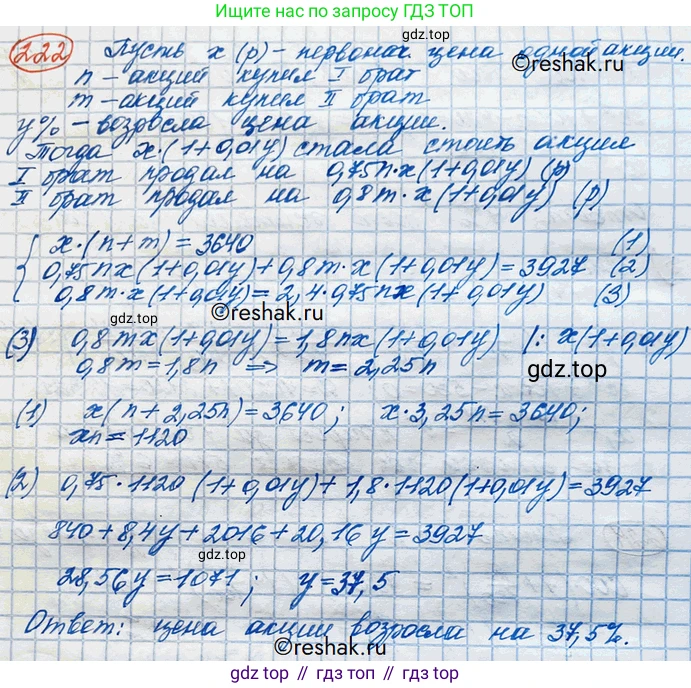 Ищите ответы
по запросу ГДЗ ТОП
222 Пусть x (р) - первонач. цена одной акции.
n - акций купил I брат
©reshak.ru
m - акций купил II брат
y% - возросла цена акции.
Тогда x·(1+0,01y) стала стоить акция
I брат продал на 0,75n·x(1+0,01y) (р)
II брат продал на 0,8m·x(1+0,01y) (р)
x·(n+m)=3640 (1)
0,75nx(1+0,01y)+0,8m·x(1+0,01y)=3927 (2)
0,8m·x(1+0,01y)=2,4·0,75nx(1+0,01y) (3)
©reshak.ru
gdz.top
(3) 0,8mx(1+0,01y)=1,8nx(1+0,01y) |: x(1+0,01y)
0,8m=1,8n ⇒ m=2,25n
gdz.top
(1) x(n+2,25n)=3640; x·3,25n=3640;
xn=1120
(2) 0,75·1120(1+0,01y)+1,8·1120(1+0,01y)=3927
840+8,4y+2016+20,16y=3927
gdz.top
28,56y=1071; y=37,5
©reshak.ru
Ответ: цена акции возросла на 37,5%.
gdz.top // гдз.top // гдз.топ